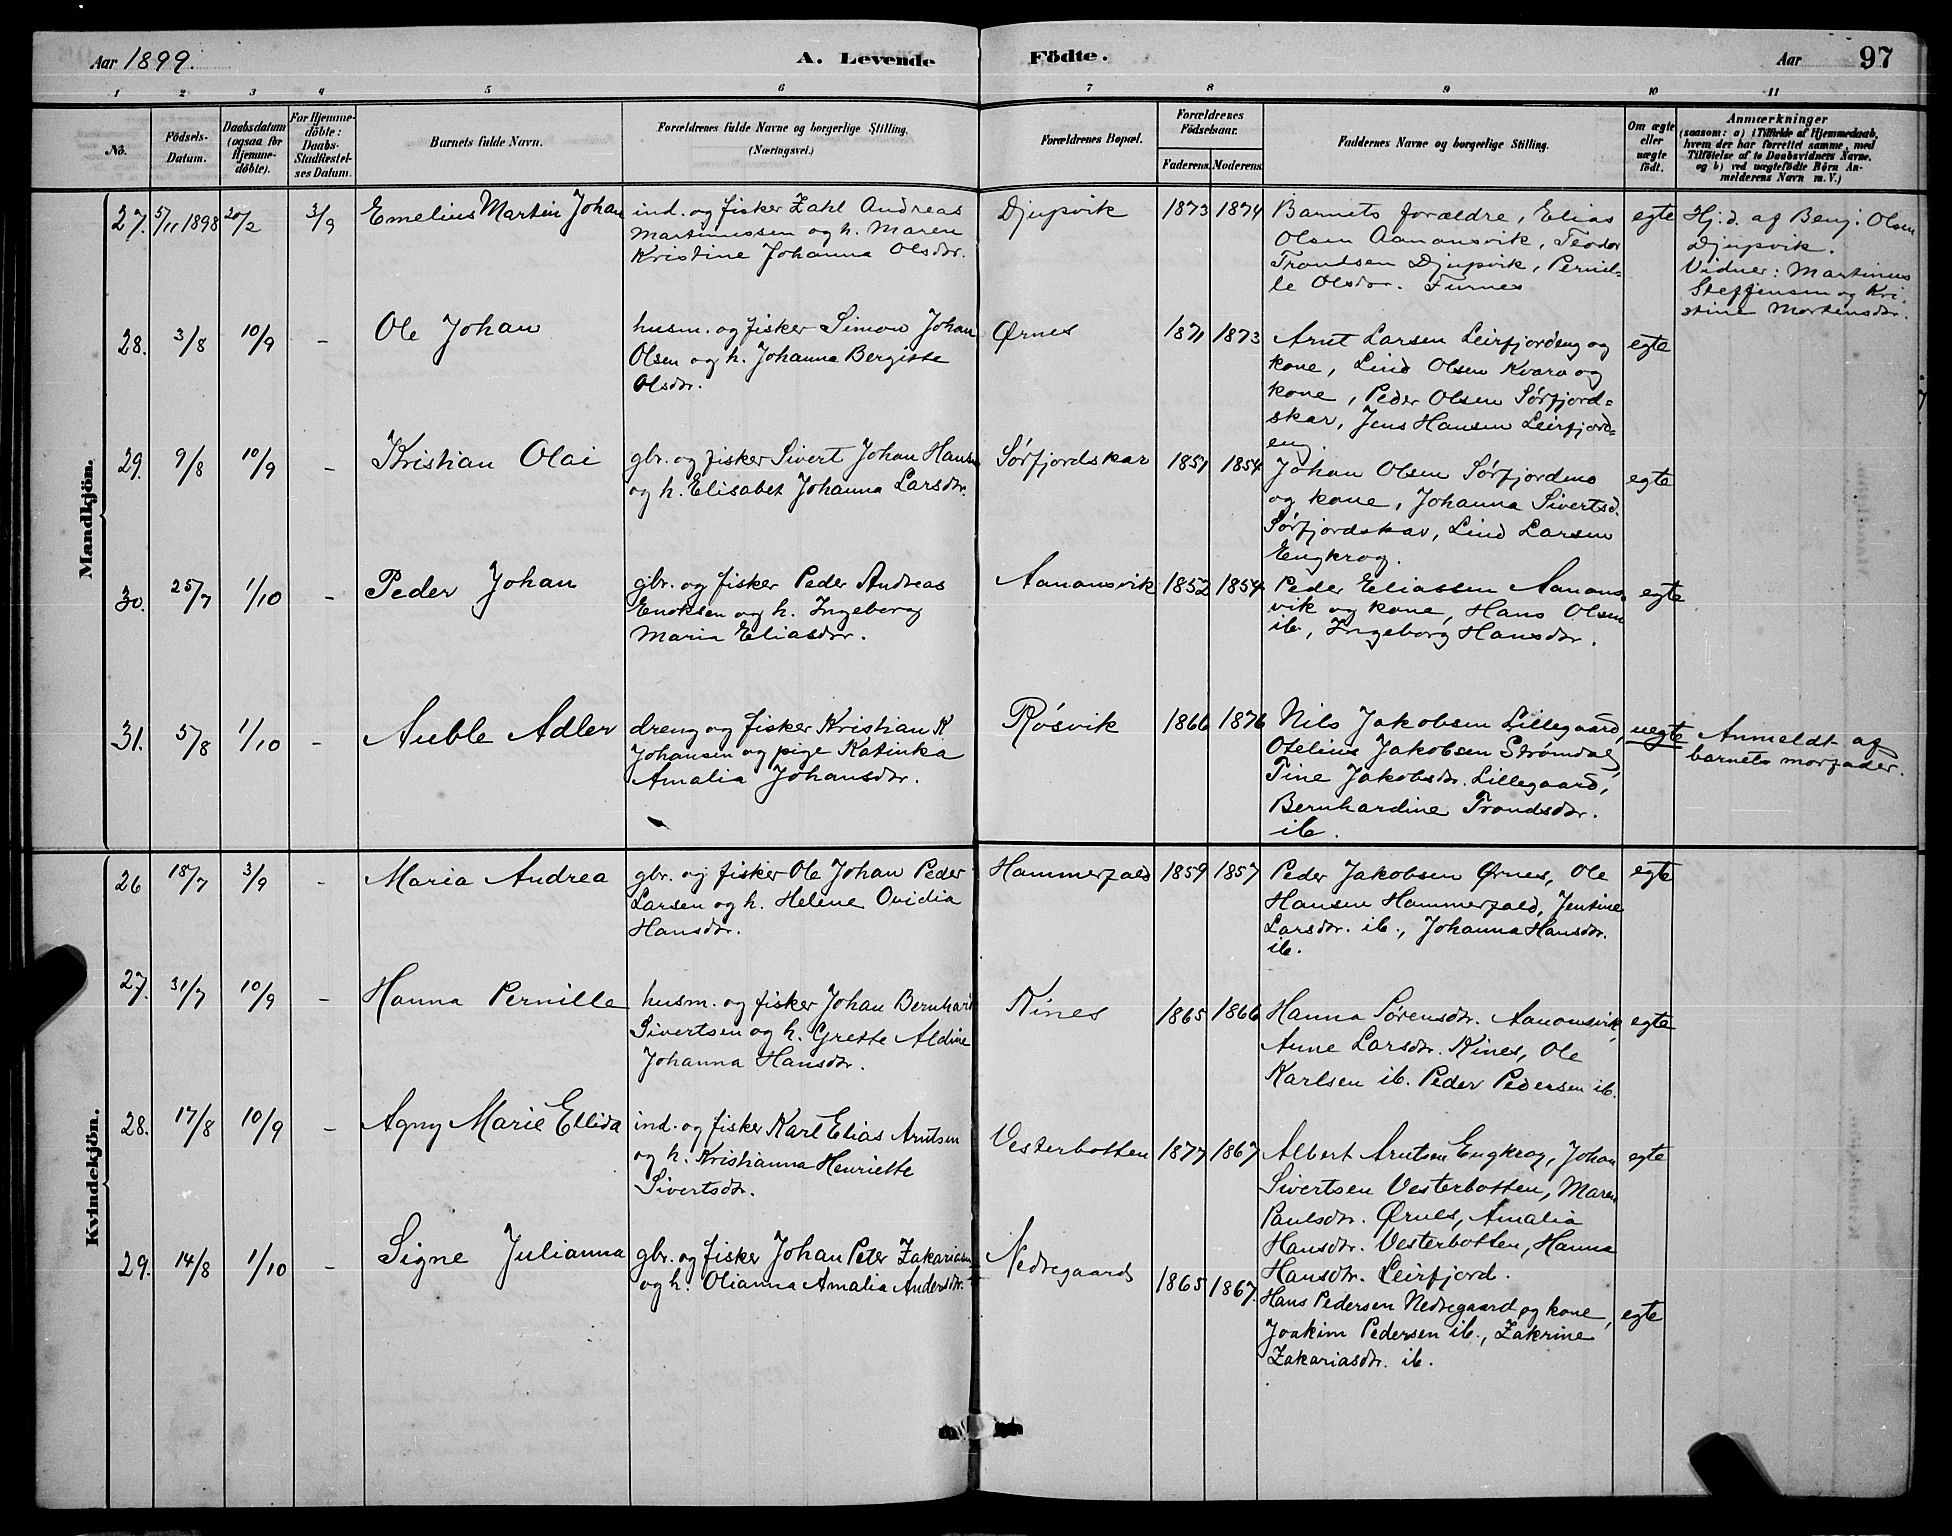 Aar 1899. A. Levende Födte. Aar 97
1 2 3 4 5 6 7 8 9 10 11
No.
Födsels-Datum.
Daabsdatum (ogsaa for Hjemme-döbte).
For Hjemme-döbte: Daabs-Stadfæstel-ses Datum.
Barnets fulde Navn.
Forældrenes fulde Navne og borgerlige Stilling.
(Næringsvei.)
Forældrenes Bopæl.
Forældrenes Födselsaar.
Faderens. Moderens.
Faddernes Navne og borgerlige Stilling.
Om ægte eller uægte født.
Anmærkninger
(saasom: a) i Tilfælde af Hjemmedaab,
hvem der har forrettet samme, med
Tilföielse af to Daabsvidners Navne,
og b) ved uægtefödte Börn An-
melderens Navn m. V.)
Mandkjön.
27. 5/11 1898 20/2 3/9 Emelius Martin Johan
ind. og fisker Zahl Andreas
Martinussen og h. Maren
Kristine Johanna Olsdtr.
Djupvik 1873 1874
Barnets forældre, Elias
Olsen Aanonsvik, Teodor
Trondsen Djupvik, Pernil-
le Olsdtr. Furnes
egte
Hj. d. af Benj. Olsen
Djupvik.
Vidner: Martinus
Steffensen og Kri-
stine Mortensdtr.
28. 3/8 10/9 - Ole Johan
husm. og fisker Simon Johan
Olsen og h. Johanna Bergitte
Olsdtr.
Ørnes 1871 1873
Arnt Larsen Leirfjordeng og
kone, Lind Olsen Kvarv og
kone, Peder Olsen Sørfjord=
skar, Jens Hansen Leirfjord=
eng.
egte
29. 9/8 10/9 - Kristian Olai
gbr. og fisker Sivert Johan Hansen
og h. Elisabet Johanna Larsdtr.
Sørfjordskar 1851 1854
Johan Olsen Sørfjordmo
og kone, Johanna Sivertsd.
Sørfjordskar, Lind Larsen
Engkrog.
egte
30. 25/7 1/10 - Peder Johan
gbr. og fisker Peder Andreas
Enoksen og h. Ingeborg
Maria Eliasdtr.
Aanonsvik 1852 1854
Peder Eliassen Aanons-
vik og kone, Hans Olsen
ib, Ingeborg Hansdtr.
egte
31. 5/8 1/10 - Auble Adler
dreng og fisker Kristian K.
Johansen og pige Katinka
Amalia Johansdtr.
Røsvik 1866 1876
Nils Jakobsen Lillegaard,
Otelius Jakobsen Strømdal,
Tine Jakobsdtr. Lillegaard,
Bernhardine Trondsdtr.
ib.
uegte
Anmeldt af
barnets morfader.
Kvindekjön.
26 18/7 3/9 - Maria Andrea
gbr. og fisker Ole Johan Peder
Larsen og h. Helene Ovidia
Hansdtr.
Hammerfald 1859 1857
Peder Jakobsen Ørnes, Ole
Hansen Hammerfald, Jentine
Larsdtr. ib., Johanna Hansdtr.
ib.
egte
27. 31/7 10/9 - Hanna Pernille
husm. og fisker Johan Bernhard
Sivertsen og h. Grette Aldine
Johanna Hansdtr.
Kines 1865 1866
Hanna Sørensdtr. Aanonsvik,
Anne Larsdtr. Kines, Ole
Karlsen ib. Peder Pedersen ib.
egte
28. 17/8 10/9 - Agny Marie Ellida
ind. og fisker Karl Elias Arntsen
og h. Kristianna Henriette
Sivertsdtr.
Vesterbotten 1877 1867
Albert Arntsen Engkrog, Johan
Sivertsen Vesterbotten, Maren
Paulsdtr. Ørnes, Amalia
Hansdtr. Vesterbotten, Hanna
Hansdtr. Leirfjord.
egte
29. 14/8 1/10 - Signe Julianna
gbr. og fisker Johan Peter Zakariasen
og h. Olianna Amalia Andersdtr.
Nedregaard 1865 1867.
Hans Pedersen Nedregaard og kone,
Joakim Pedersen ib., Zakrine
Zakariasdtr. ib.
egte